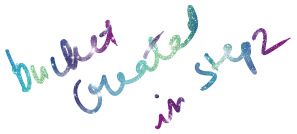 bucket
created
in step2